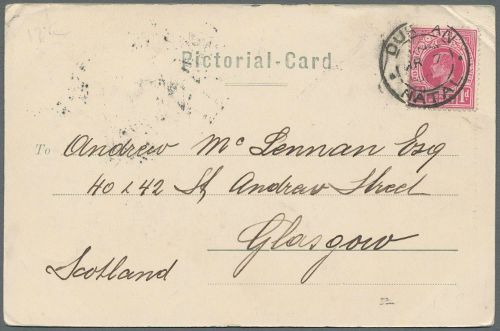 Pictorial-Card
DURBAN
NATAL
1d
To Andrew McLennan Esq
40 & 42 St Andrew Street
Glasgow
Scotland